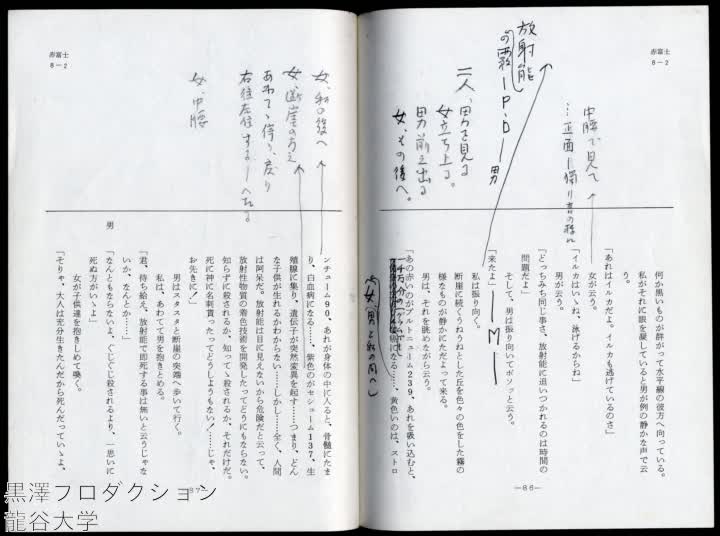 赤富士
8-2
放射能
の霧—P.D—男
二人、男を見る
女立ち上る。
男前に出る
女、その後へ。
中腰で見て
何か黒いものが群がって水平線の彼方へ向っている。
私がそれに眼を凝していると男が例の静かな声で云
う。
「あれはイルカだよ。イルカも逃げているのさ」
女が云う。
「イルカはいいね、泳げるからね」
男が云う。
「どっちみち同じ事さ、放射能に追いつかれるのは時間の
問題だよ」
そして、男は振り向いてボソッと云う。
「来たよ」—M—
私は振り向く。
断崖に続くうねうねとした丘を色々の色をした霧の
様なものが静かにただよって来る。
男は、それを眺めながら云う。
「あの赤いのがプルトニューム239、あれを吸い込むと、
一千万分の一グラムでも癌になる……、黄色いのは、ストロ
(女、男と私の間へ)
—86—
赤富士
8-2
女、私の後へ
女、断崖の方え
あわてゝ停り、戻り
右往左往する
女、中腰
ンチューム90、あれが身体の中に入ると、骨髄にたま
り、白血病になる……、紫色のがセシューム137、生
殖腺に集り、遺伝子が突然変異を起す……つまり、どん
な子供が生れるかわからない……しかし……全く、人間
は阿呆だ。放射能は目に見えないから危険だと云って、
放射性物質の着色技術を開発したってどうにもならない。
知らずに殺されるか、知ってゝ殺されるか、それだけだ。
死に神に名刺貰ったってどうしようもない!……じゃ、
お先きに!」
男はスタスタと断崖の突端へ歩いて行く。
私は、あわてて男を抱きとめる。
「君、待ち給え、放射能で即死する事は無いと云うじゃな
いか、なんとか……」
男
「なんともならないよ、ぐじぐじ殺されるより、一思いに
死ぬ方がいゝよ」
女が子供達を抱きしめて喚く。
「そりゃ、大人は充分生きたんだから死んだっていゝよ、
87
黒澤プロダクション
龍谷大学